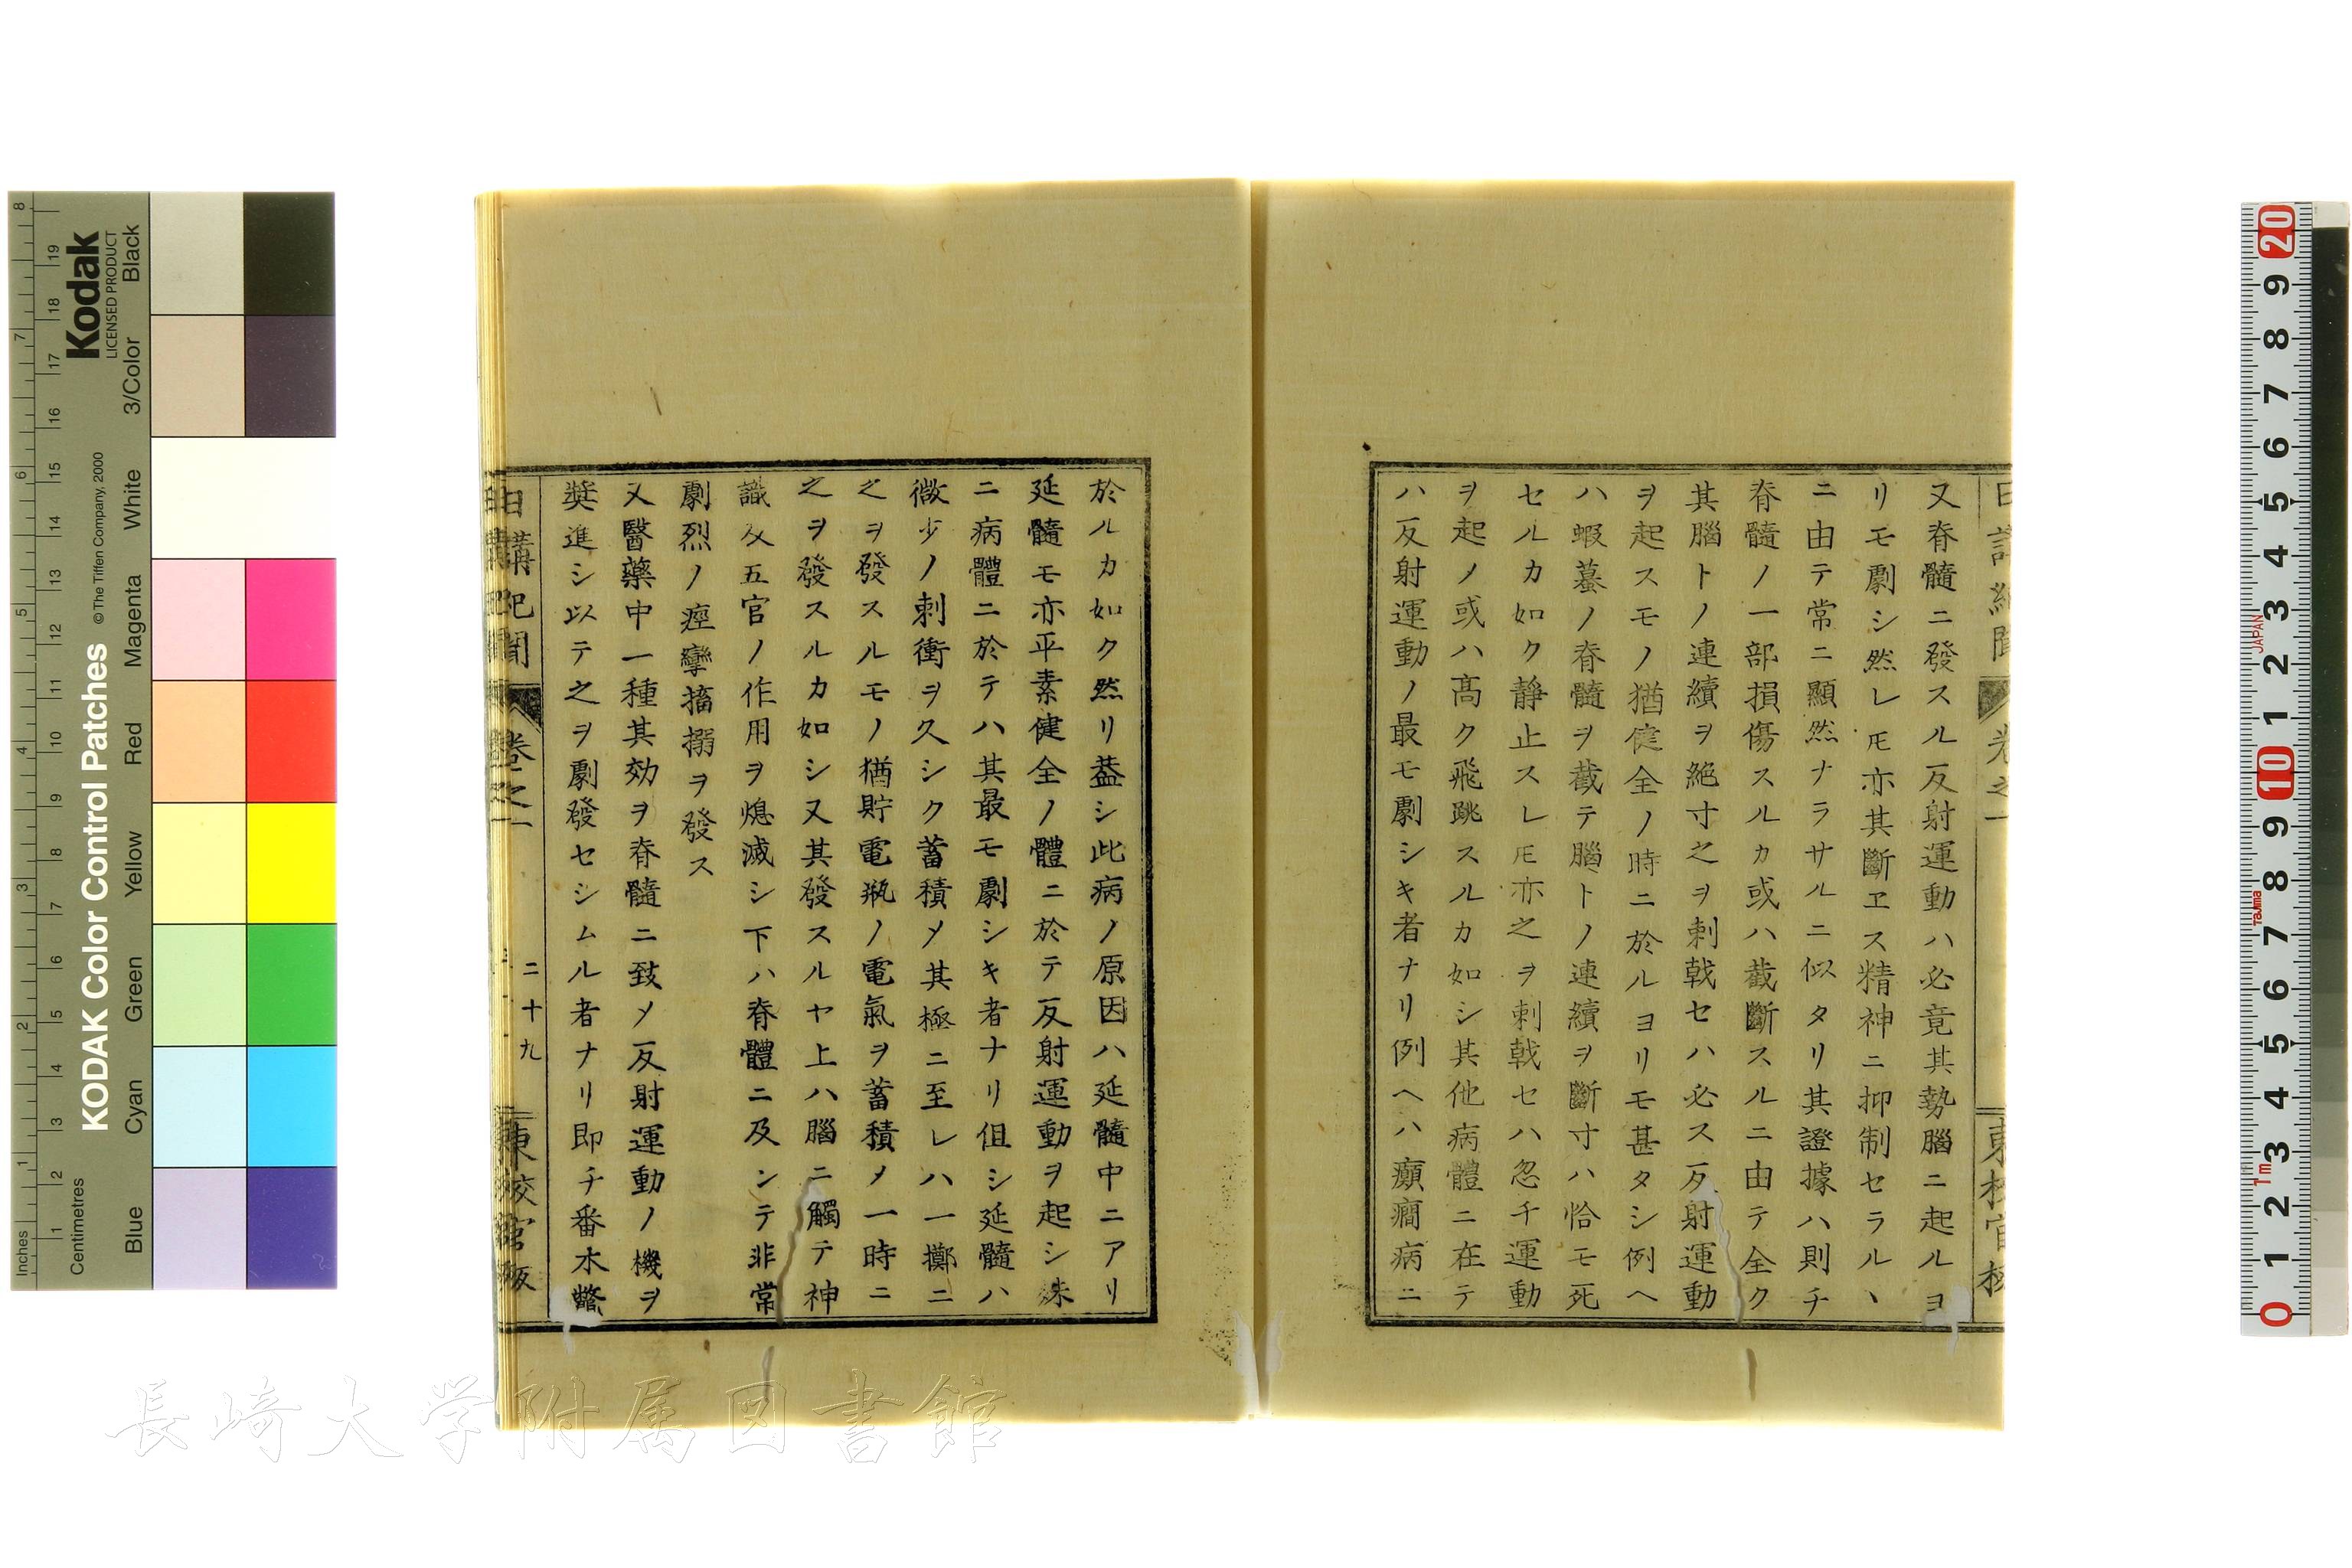 又脊髓ニ發スル反射運動ハ必竟其勢腦ニ起ルヨ
リモ劇シ然レ𪜈亦其斷ヱス精神ニ抑制セラルヽ
ニ由テ常ニ顯然ナラサルニ似タリ其證據ハ則チ
脊髓ノ一部損傷スルカ或ハ截斷スルニ由テ全ク
其腦トノ連續ヲ絶寸之ヲ刺戟セハ必ス反射運動
ヲ起スモノ猶健全ノ時ニ於ルヨリモ甚タシ例ヘ
ハ蝦蟇ノ脊髓ヲ截テ腦トノ連續ヲ斷寸ハ恰モ死
セルカ如ク靜止スレ𪜈亦之ヲ刺戟セハ忽チ運動
ヲ起ノ或ハ髙ク飛跳スルカ如シ其他病體ニ在テ
ハ反射運動ノ最モ劇シキ者ナリ例ヘハ癲癇病ニ
於ルカ如ク然リ葢シ此病ノ原因ハ延髓中ニアリ
延髓モ亦平素健全ノ體ニ於テ反射運動ヲ起シ殊
ニ病體ニ於テハ其最モ劇シキ者ナリ伹シ延髓ハ
微少ノ刺衝ヲ久シク蓄積メ其極ニ至レハ一擲ニ
之ヲ發スルモノ猶貯電瓶ノ電氣ヲ蓄積メ一時ニ
之ヲ發スルカ如シ又其發スルヤ上ハ腦ニ觸テ神
識及五官ノ作用ヲ熄滅シ下ハ脊體ニ及ンテ非常
劇烈ノ痙攣搐搦ヲ發ス
又醫藥中一種其効ヲ脊髓ニ致メ反射運動ノ機ヲ
奬進シ以テ之ヲ劇發セシムル者ナリ即チ番木鼈
日講紀聞 卷之一 二十九 東校官版
Kodak
LICENSED PRODUCT
KODAK Color Control Patches
© The Tiffen Company, 2000
Blue Cyan Green Yellow Red Magenta White 3/Color Black
Inches
Centimetres
長崎大学附属図書館
JAPAN
Tajima
1m